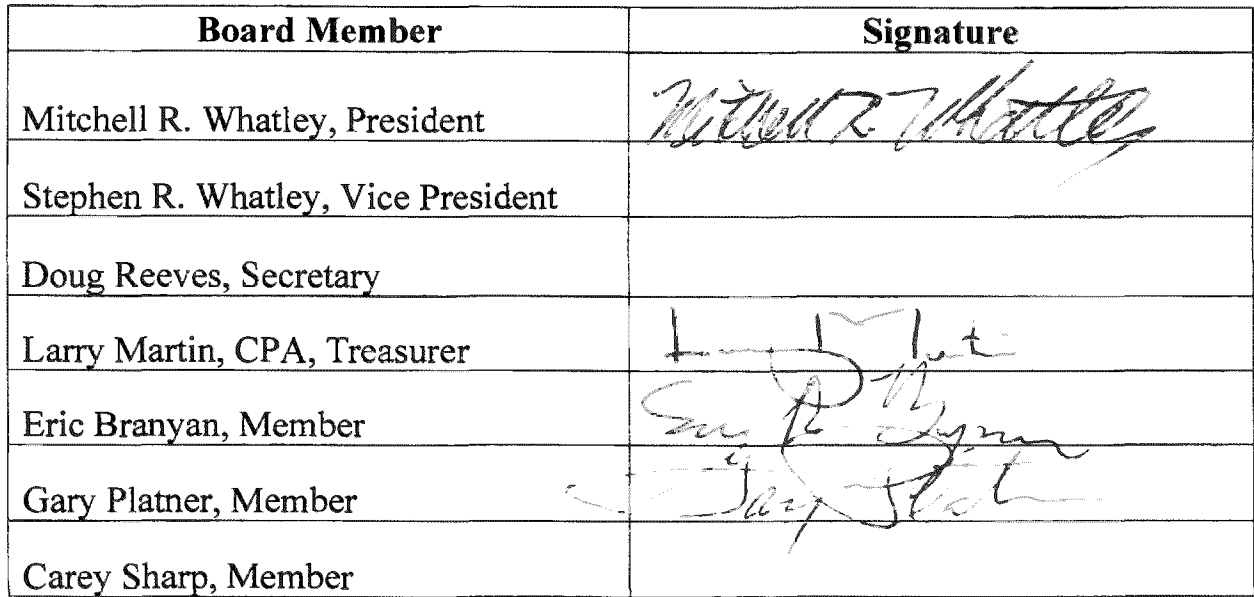 Board Member Signature
Mitchell R. Whatley, President Mitchell R. Whatley
Stephen R. Whatley, Vice President
Doug Reeves, Secretary
Larry Martin, CPA, Treasurer
Eric Branyan, Member
Gary Platner, Member
Carey Sharp, Member